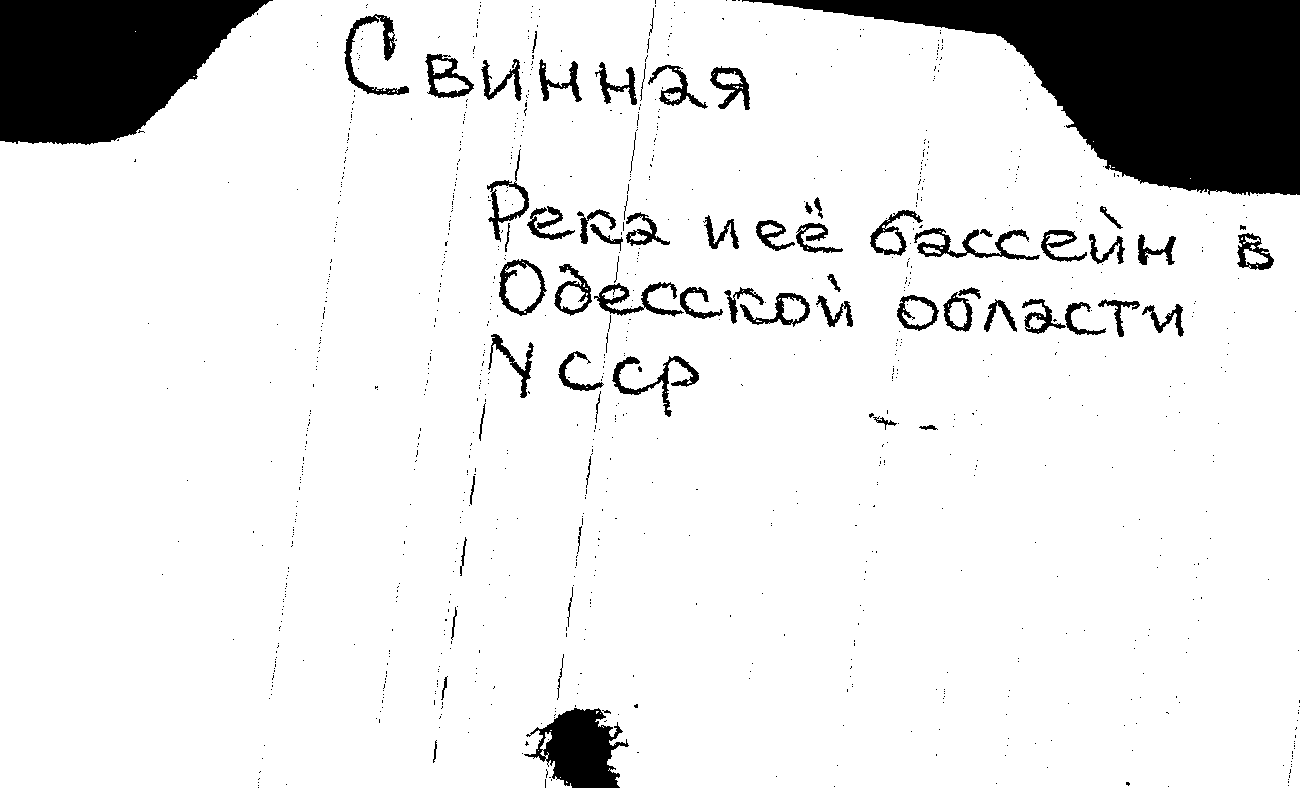 Свинная
Река и её бассейн в
Одесской области
УССР